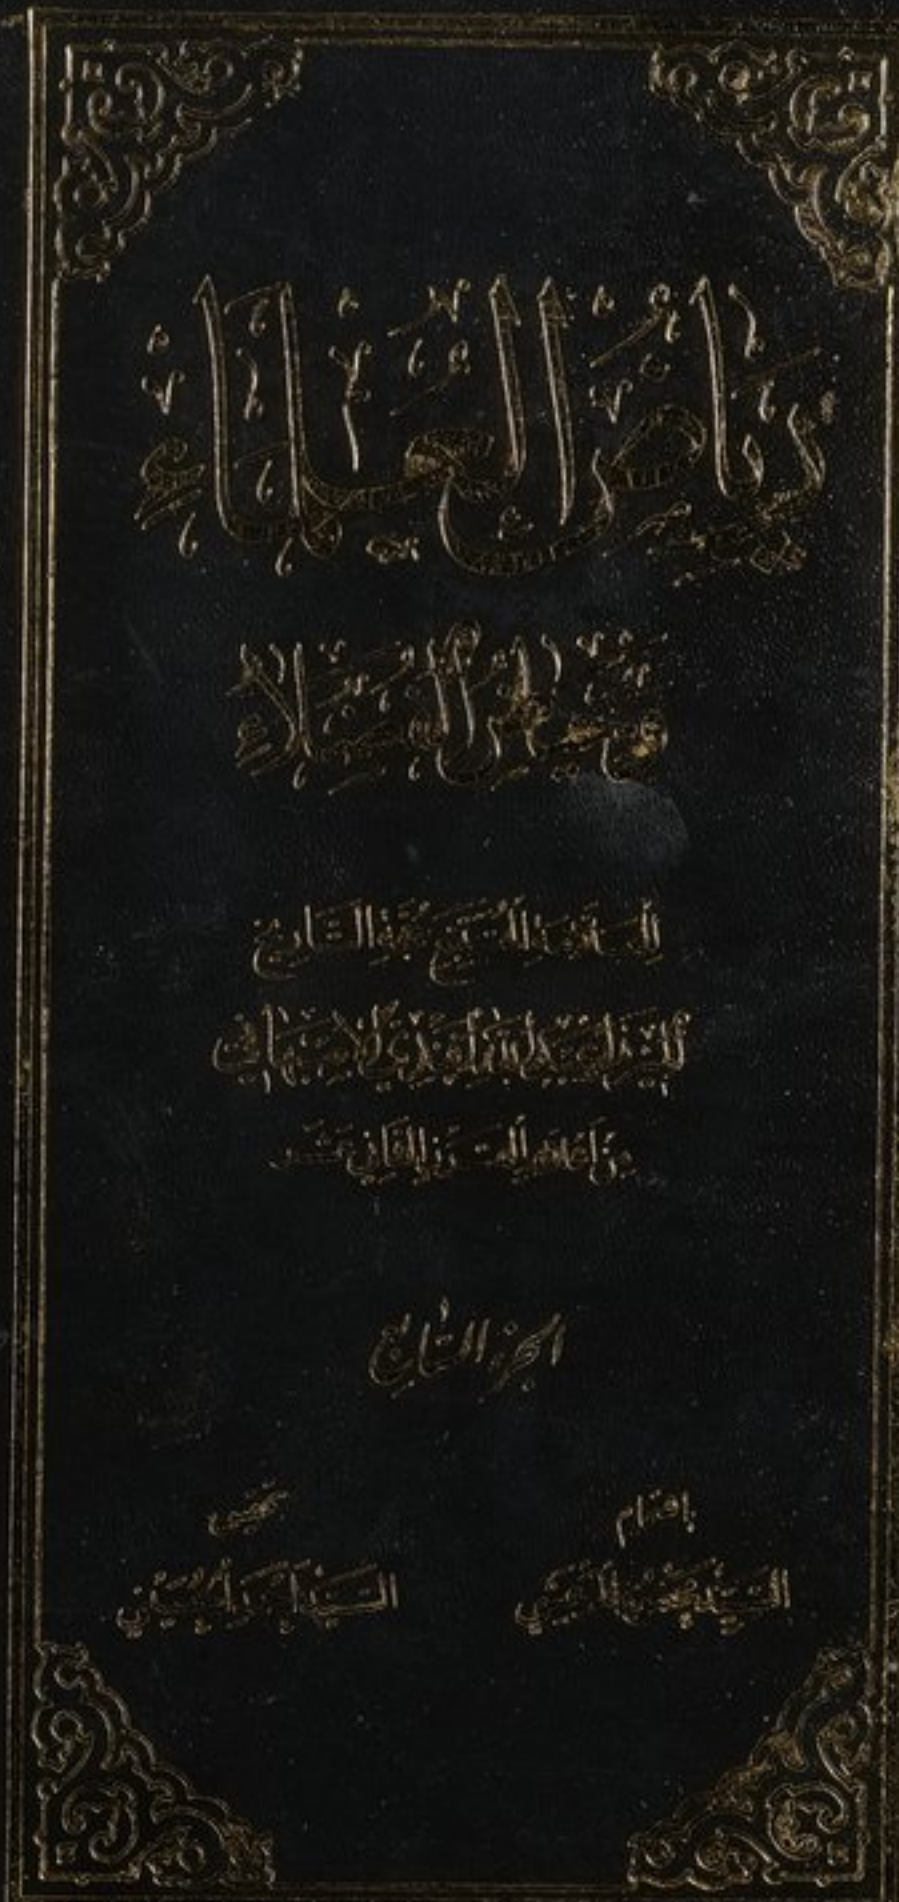 رِيَاضُ الْعُلَمَاءِ
وَحِيَاضُ الْفُضَلَاءِ
لِلْعَلَّامَةِ الْمُتَتَبِّعِ الشَّارِعِ
الْمِيرْزَا عَبْدِ اللهِ أَفَنْدِي الْأَصْبَهَانِي
مِنْ أَعْلَامِ الْقَرْنِ الثَّانِي عَشَر
الجزء السابع
باهتمام
تحقيق
السيد محمود المرعشي
السيد أحمد الحسيني